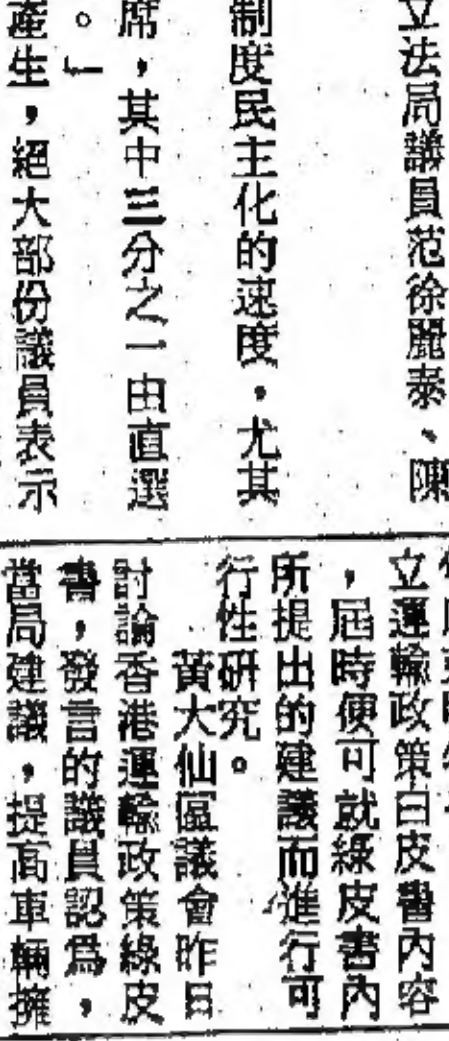 立法局議員范徐麗泰、陳
制度民主化的速度，尤其
席，其中三分之一由直選
。」
產生，絕大部份議員表示
立運輸政策白皮書內容
，屆時便可就綠皮書內
所提出的建議而進行可
行性研究。
黃大仙區議會昨日
討論香港運輸政策綠皮
書，發言的議員認為，
當局建議，提高車輛擁